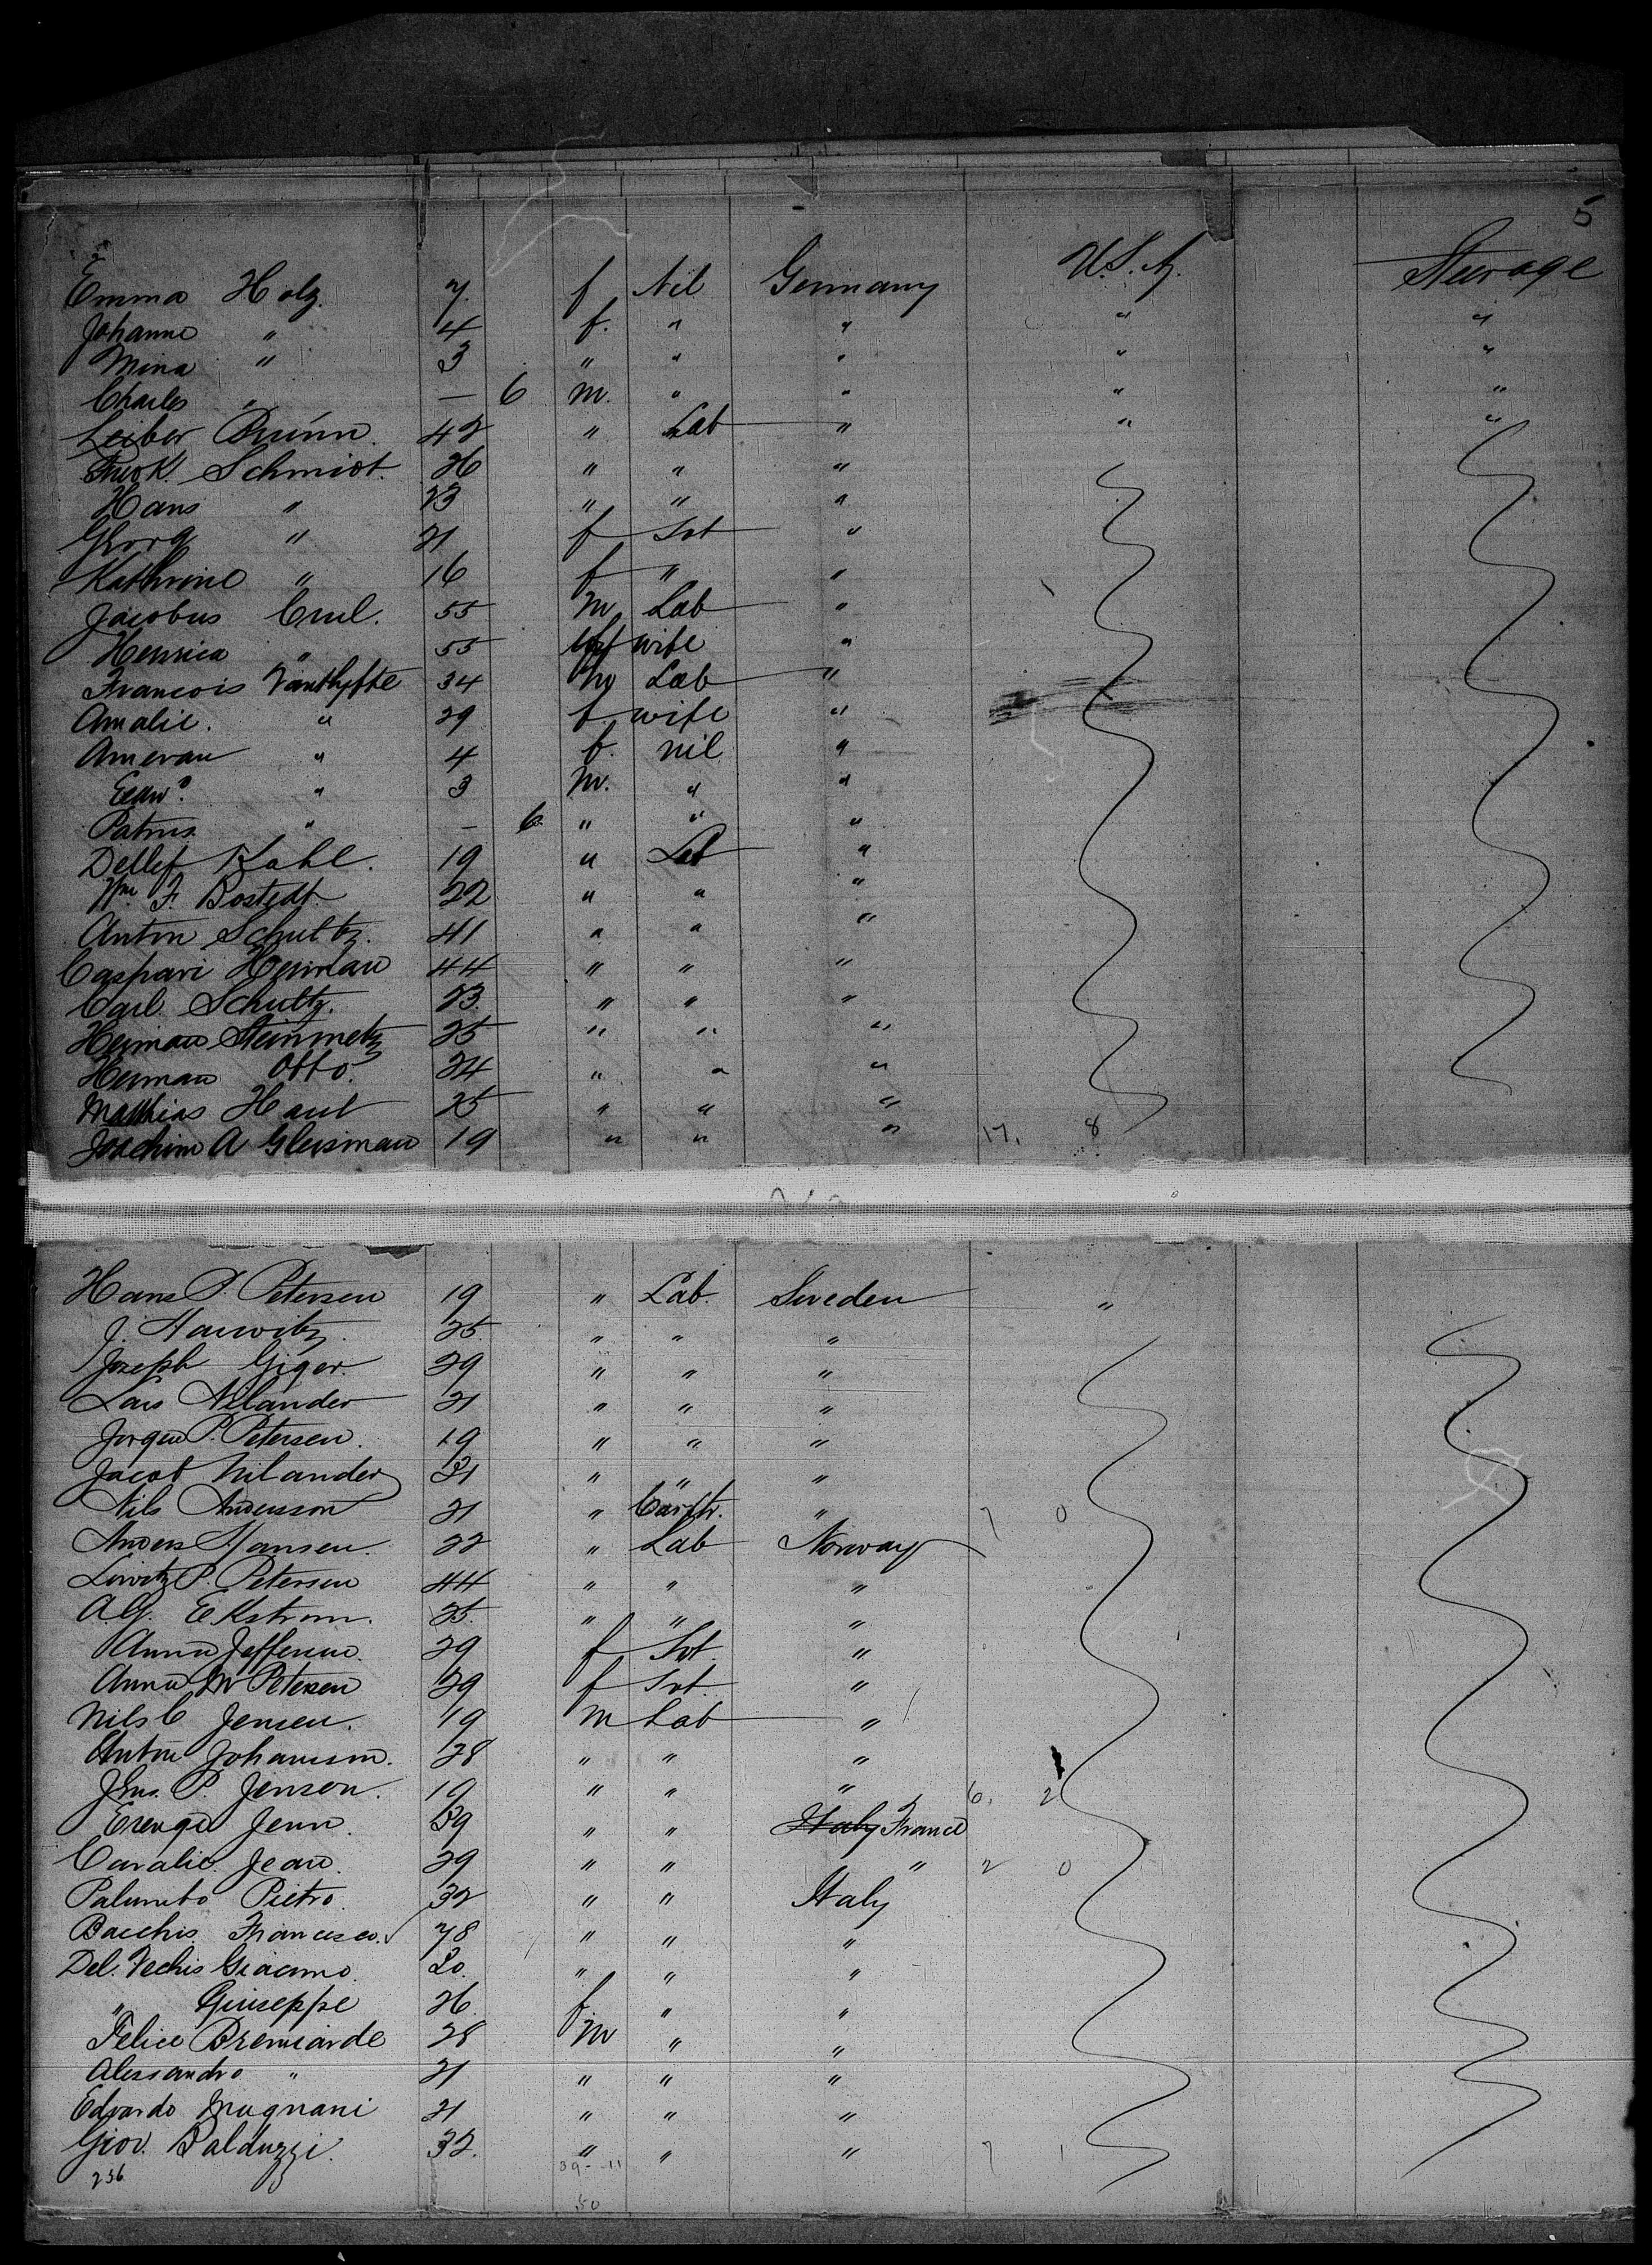 5
Emma Holz. 7. f Nil Germany U.S.A. Steerage
Johanne " 4 f. " " " "
Mina " 3 " " " " "
Charles " — 6 m. " " " "
Leiber Brünn. 42 " Lab " " "
Fredk. Schmidt. 26 " " "
Hans " 23 " " "
Georg " 21 f Svt "
Kathrine " 16 f " "
Jacobus Crul. 55 m Lab "
Henrica " 55 f wife "
Francois Vanthyfte 34 m Lab "
Amalie. " 29 f. wife "
Ameran " 4 f. nil "
Edwd. " 3 m. " "
Patrus. " — 6. " " "
Detlef Kahl. 19 " Lab "
Wm. F. Bostedt. 22 " " "
Anton Schultz. 41 " " "
Caspari Herman 44 " " "
Carl Schultz. 23. " " "
Herman Steinmetz 25 " " "
Herman Otto. 24 " " "
Mathias Haut 25 " " "
Joachim A Gleisman 19 " " " 17. 8
Hans P. Petersen 19 " Lab. Sweden "
J. Hauwitz. 25. " " "
Joseph Giger. 29 " " "
Lars Nilander 21 " " "
Jorgen P. Petersen. 19 " " "
Jacob Nilander 21 " " "
Nils Andersson 21 " Carptr. " 7 0
Anders Hansen. 22 " Lab Norway
Lewitz P. Petersen 44 " " "
A.G. Ekstrom. 25. " " "
Anna Jeffersen. 29 f Svt. "
Anna M Petersen 29 f Svt. "
Nils C Jensen. 19 m Lab "
Anton Johannson. 28 " " "
Jens. P. Jenson. 19 " " " 6. 2
Erenga Jean. 39 " " Italy France
Cavalie. Jean. 29 " " " 2 0
Palumbo Pietro. 32 " " Italy
Bacchis. Francesco. 78 " " "
Del. Vechis Giacomo. 20. " " "
" Giuseppe 26. f. " "
Felice Bremiarde 28 m " "
Alessandro " 21 " " "
Edvardo Mugnani 21 " " "
Giov. Balduzzi. 32. " " " 7 1
256
39 - 11
50